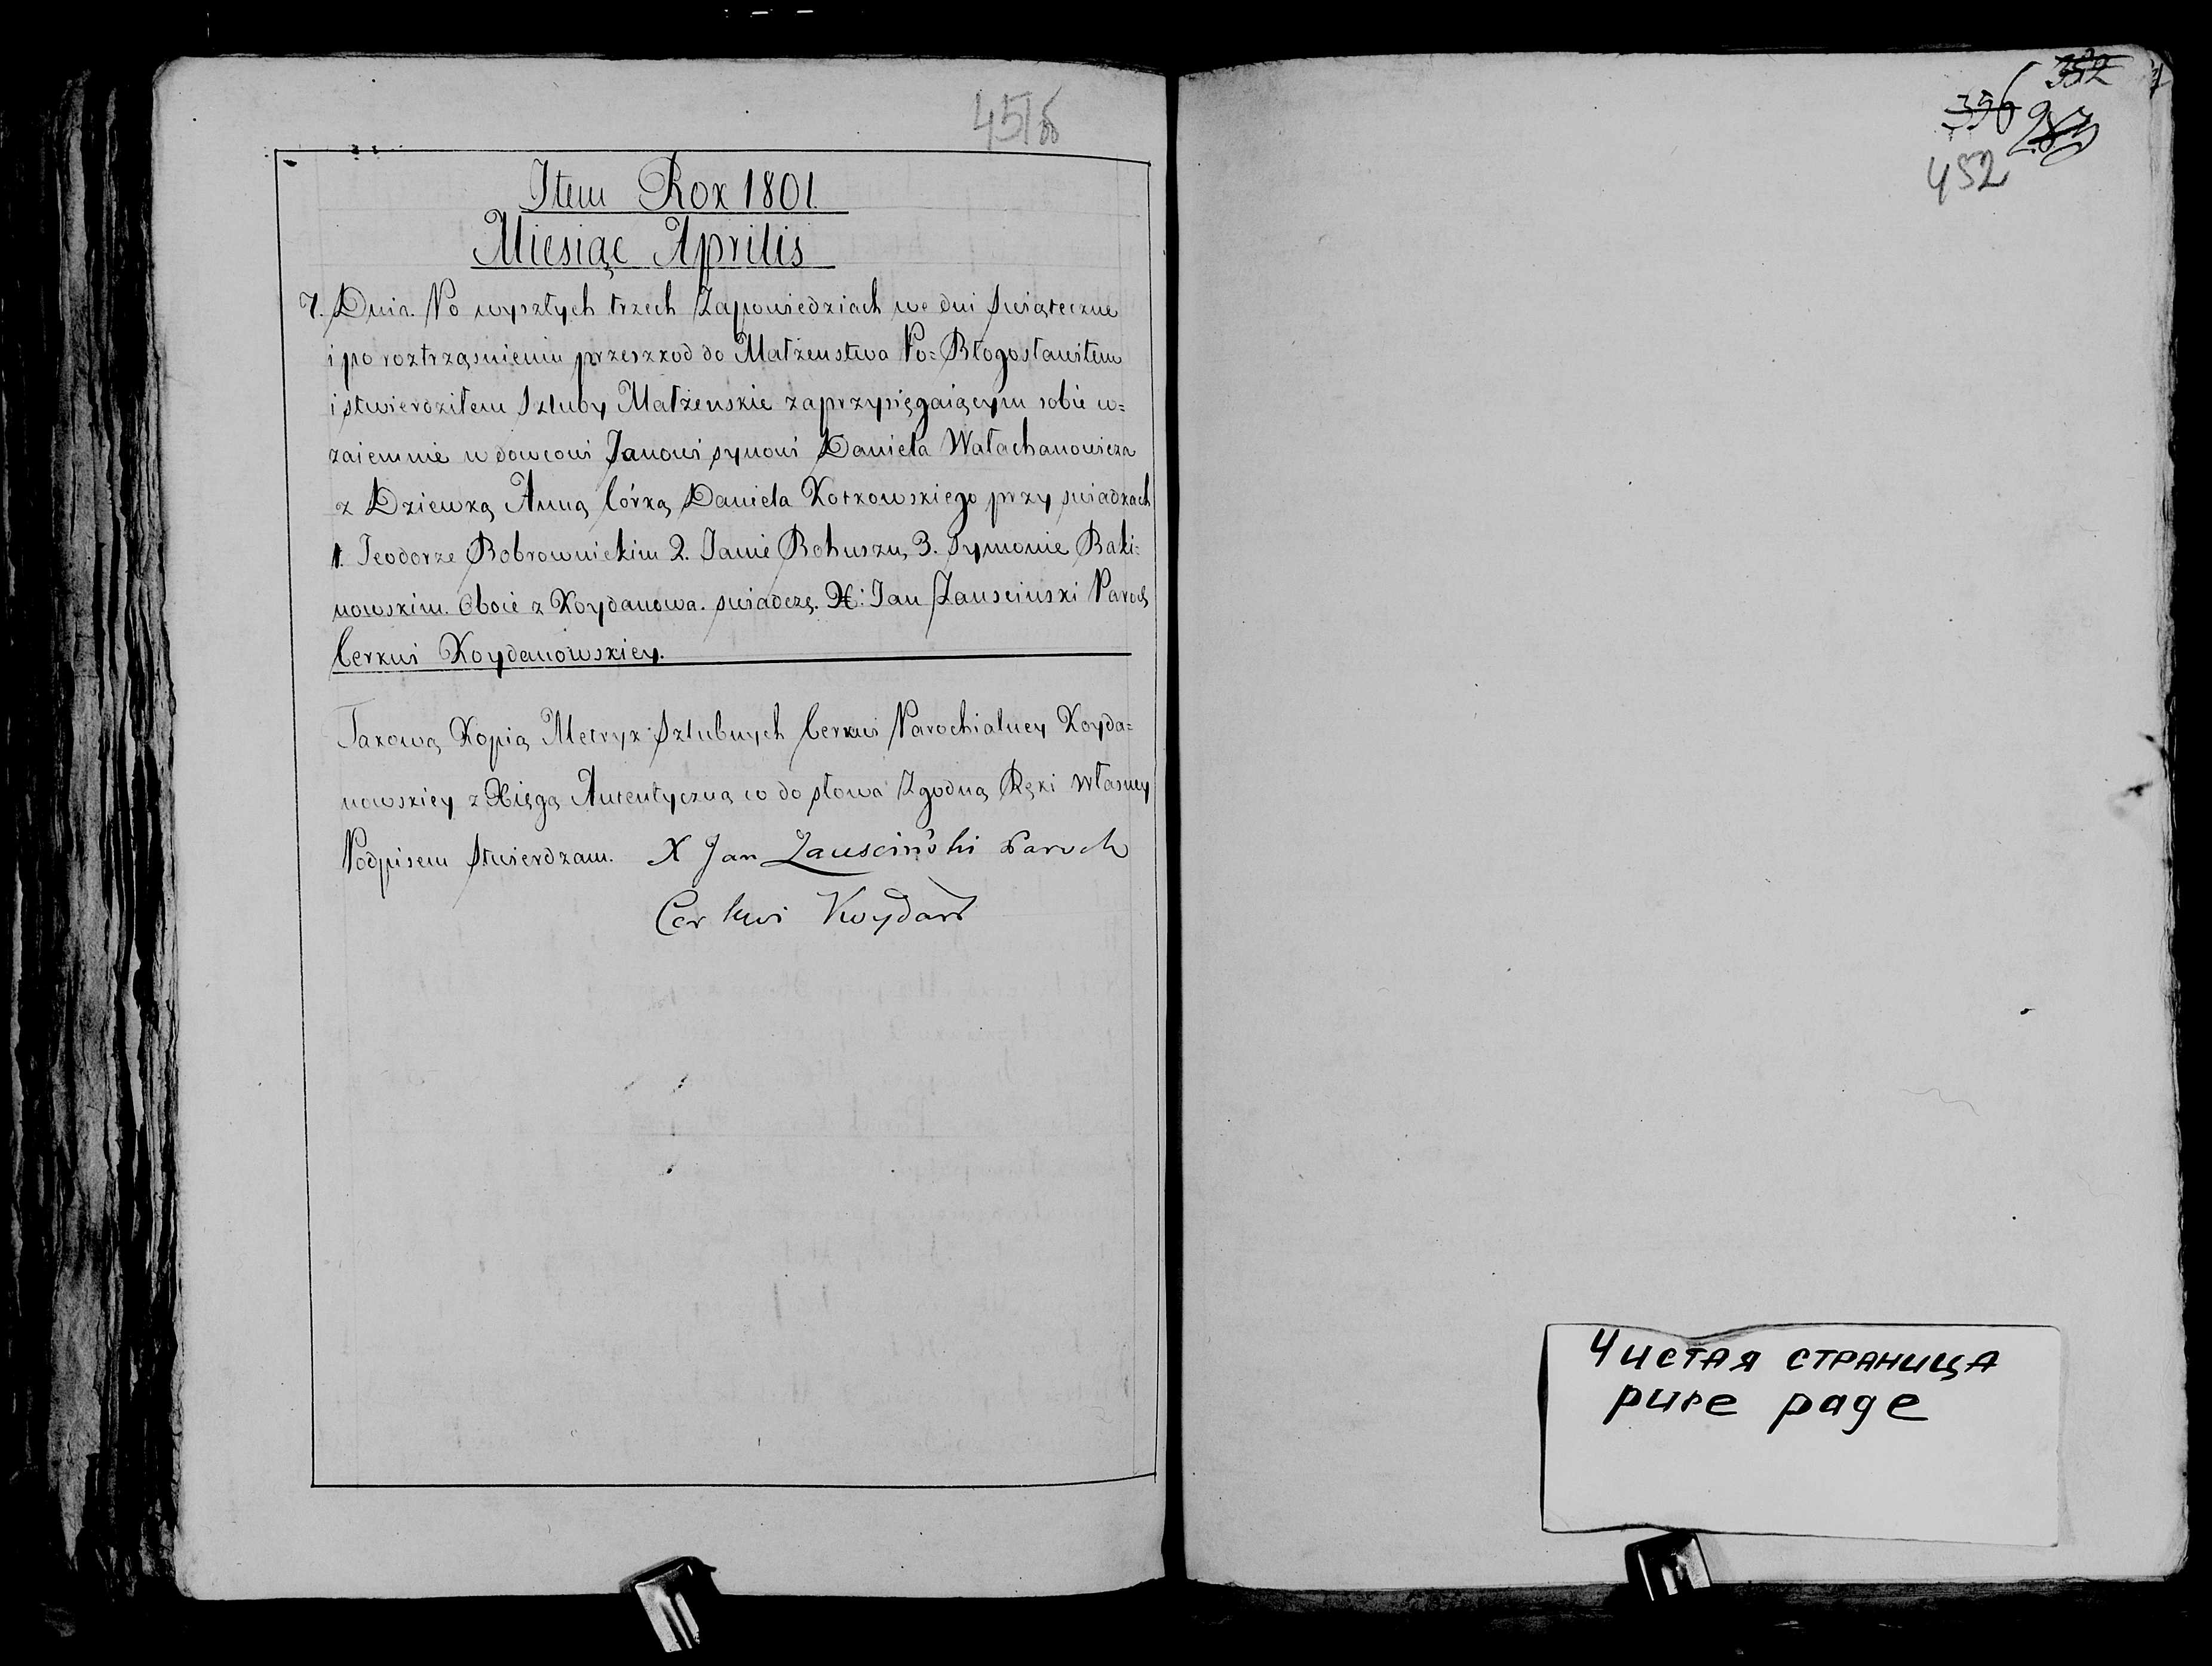 Item Rok 1801.
Miesiąc Aprilis
7. Dnia. Po wyszłych trzech Zapowiedziach we dni Swiąteczne
i po roztrząsnieniu przeszkod do Małżenstwa Po=Błogosławiłem
i stwierdziłem Szluby Małżenskie zaprzysięgaiącym sobie w=
zaiemnie wdowcowi Janowi synowi Daniela Wałachanowicza
z Dziewką Anną Córką Daniela Kotkowskiego przy swiadkach
1. Teodorze Bobrownickim 2. Janie Bohuszu, 3. Symonie Baki=
nowskim. Oboie z Koydanowa. swiadczę. X: Jan Zauscinski Paroch
Cerkwi Koydanowskiey.
Takową Kopią Metryk Szlubnych Cerkwi Parochialney Koyda=
nowskiey z Xięgą Autentyczną co do słowa Zgodną Ręki Własney
Podpisem Stwierdzam. X Jan Zausciński Paroch
Cerkwi Koydan
396
382
452
Чистая страница
pure page